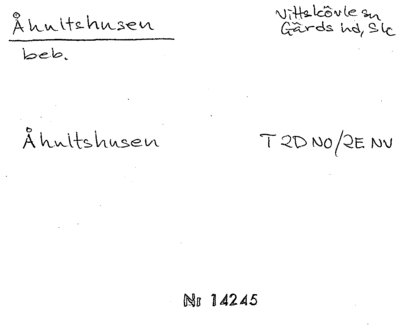 Åhultshusen
Vittskövle sn
Gärds hd, Skc
beb.
Åhultshusen
T 2D NO/2E NV
Nr 14245